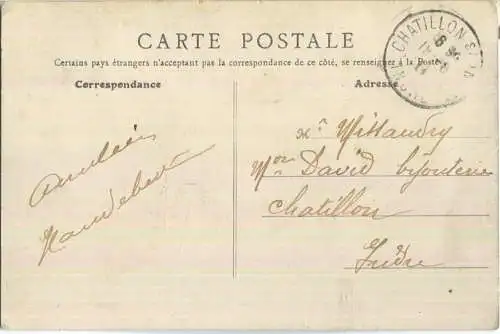 CARTE POSTALE
Certains pays étrangers n'acceptant pas la correspondance de ce côté, se renseigner à la Poste
Correspondance
Adresse
CHATILLON S/
INDRE
Mittaudry
Mon David bijouterie
Chatillon
Indre